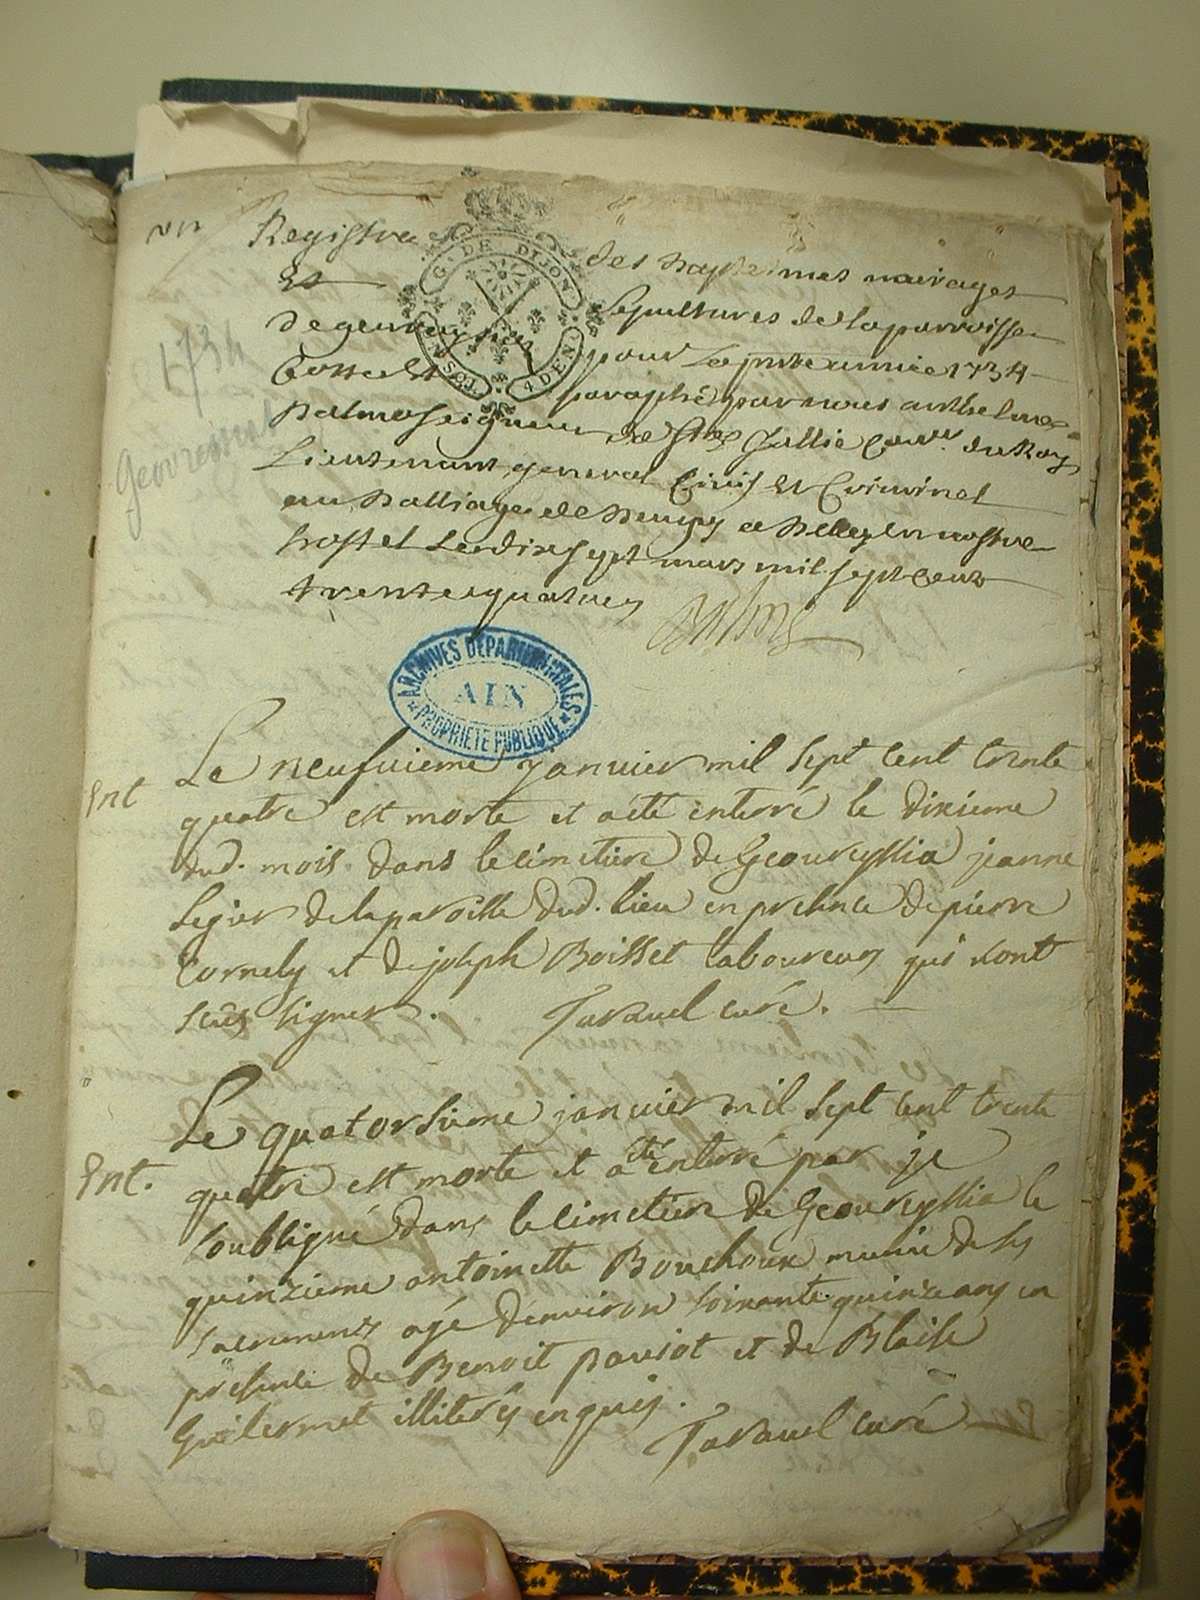 Registre des baptesmes mariages
Et Sepultures de laparroisse
de
Cotte Et pour Lapnte année 1734
paraphé par nous anthelme
Balme Seigneur de Ste Jullie Coner. du Roy
Lieutenant general Civil Et Criminel
au Balliage de Beugey a Belley En nostre
hostel Le dix sept mars mil sept cent
trente quatre
1734
Geovreissiat
GT. DE DIJON
4 DEN
ARCHIVES DEPARTEMENTALES
AIN
PROPRIETE PUBLIQUE
Ent
Le neufvieme janvier mil sept cent trente
quatre est morte et a eté enterré le dixieme
dud. mois dans le cimetiere de Geovreyssia jeanne
Segier de la paroisse dud. lieu en presence de pierre
Cornely et de joseph Boisset laboureurs qui n'ont
sceus signer. Taravel curé.
Ent.
Le quatorsieme janvier mil sept cent trente
quatre est morte et a eté enterré par je
soubsigné dans le cimetiere de Geovreyssia le
quinzieme antoinette Bouchoux munie de ses
sacrements agé d'environ soixante quinze ans en
presence de Benoit paviot et de Blaise
Guilermet illiterés enquis.
Taravel curé